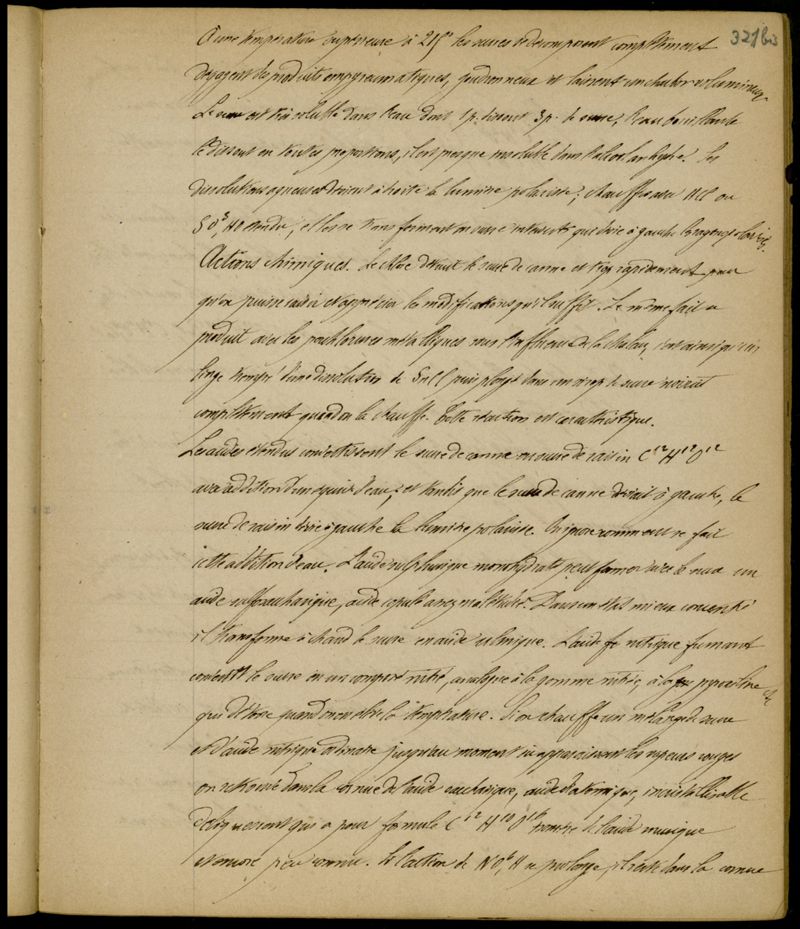 321 bis
A une température supérieure à 215° les sucres se décomposent complètement
dégagent des produits empyreumatiques, goudronneux et laissent un charbon volumineux.
Le sucre est très soluble dans l'eau dont 1 p. dissout 3 p. de sucre, l'eau bouillante
le dissout en toutes proportions, il est presque insoluble dans l'alcool anhydre. Les
dissolutions aqueuses dévient à droite la lumière polarisée; chauffées avec HCl ou
SO³, HO étendu, elles se transforment en sucre interverti qui dévie à gauche
Actions chimiques. Le chlore détruit le sucre de canne et trop rapidement pour
qu'on puisse saisir et apprécier les modifications qu'il subit. Le même fait se
produit avec les perchlorures métalliques sous l'influence de la chaleur, c'est ainsi qu'un
linge trempé d'une dissolution de puis plongé dans un sirop de sucre noircit
complètement quand on le chauffe. Cette réaction est caractéristique.
Les acides étendus convertissent le sucre de canne en sucre de raisin C¹²H¹²O¹²
avec addition d'un équiv. d'eau, et tandis que le sucre de canne déviait à gauche, le
sucre de raisin dévie à gauche la lumière polarisée. On ignore comment se fait
cette addition d'eau. L'acide sulphurique monohydraté peut former avec le sucre un
acide sulfosaccharique, acide copulé assez mal étudié. Dans un état mieux concentré
il transforme à chaud le sucre en acide ulmique. L'acide nitrique fumant
convertit le sucre en un composé nitré, analogue à la gomme nitrée, à la pyroxiline &c
qui détone quand on en élève la température. Si on chauffe un mélange de sucre
et d'acide nitrique ordinaire jusqu'au moment où apparaissent les vapeurs rouges
on retrouve dans la cornue de l'acide saccharique, acide diatomique, incristallisable
déliquescent qui a pour formule C¹² H¹⁰ O¹⁶ isomère de l'acide mucique
et encore peu connu. Si l'action de NO⁶, H se prolonge, il reste dans la cornue